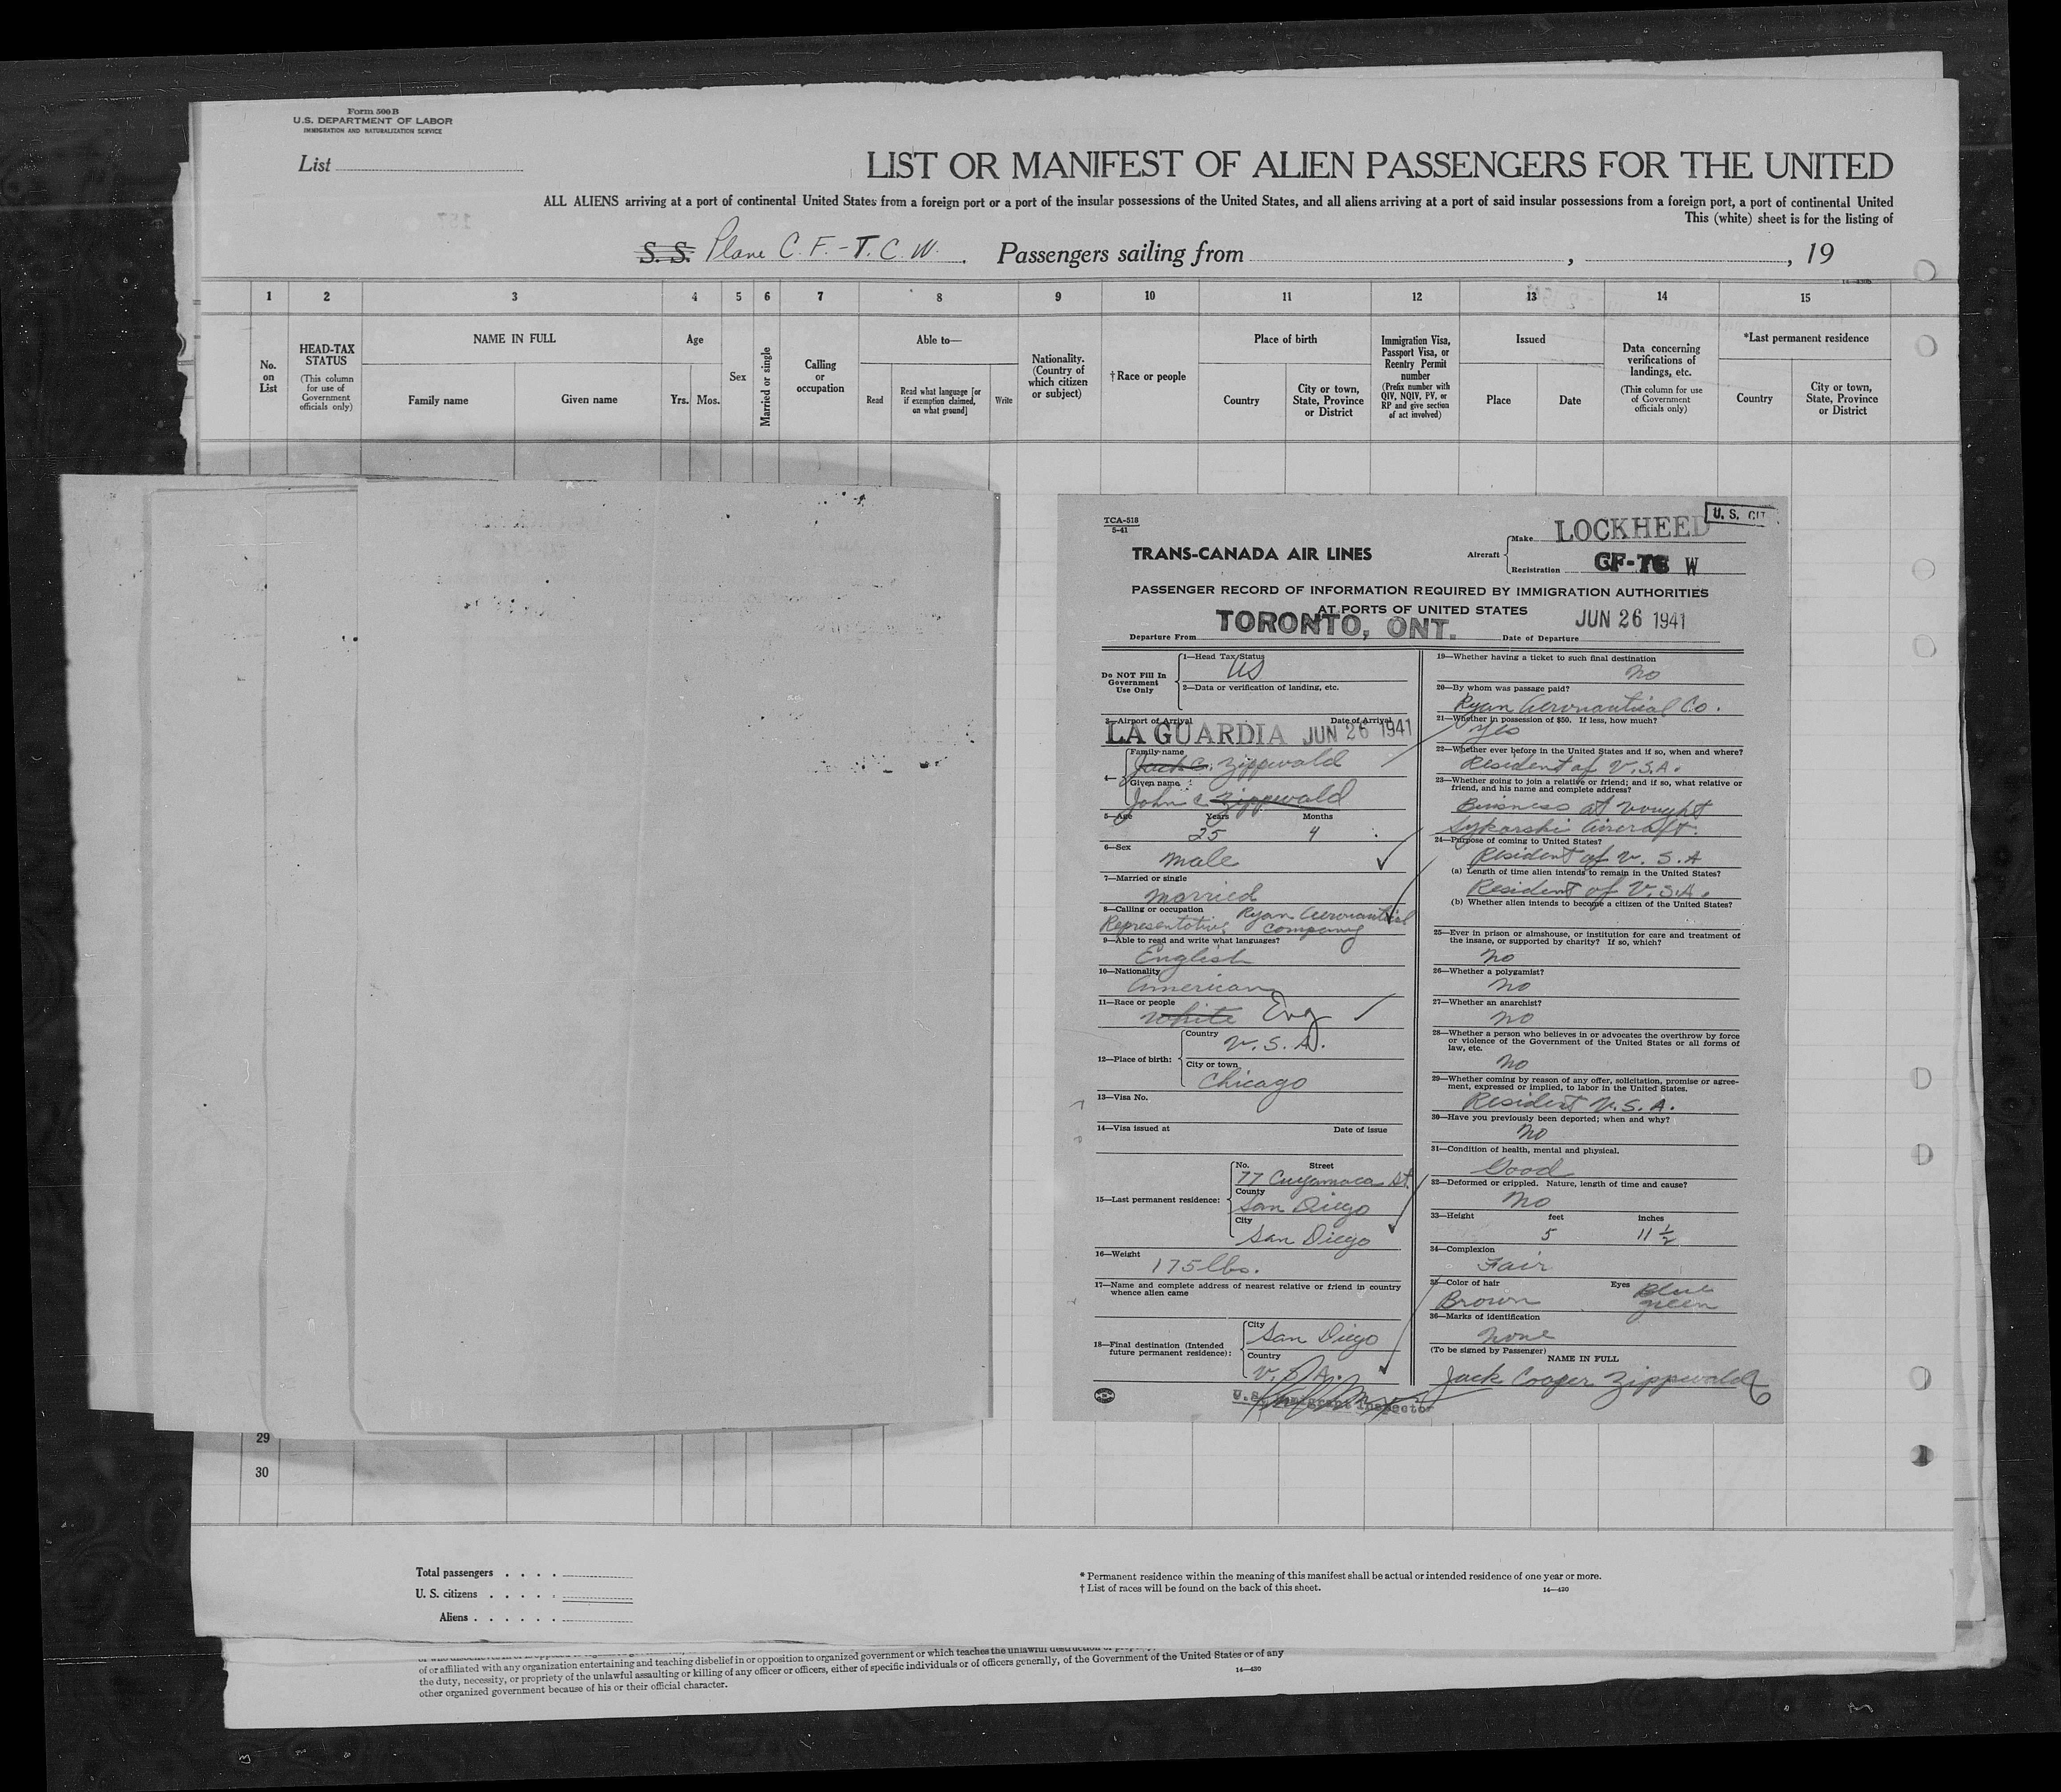 Form 500 B
U.S. DEPARTMENT OF LABOR
IMMIGRATION AND NATURALIZATION SERVICE
List
LIST OR MANIFEST OF ALIEN PASSENGERS FOR THE UNITED
ALL ALIENS arriving at a port of continental United States from a foreign port or a port of the insular possessions of the United States, and all aliens arriving at a port of said insular possessions from a foreign port, a port of continental United
This (white) sheet is for the listing of
S. S. Plane C. F.-T. C. W. Passengers sailing from , , 19
1 2 3 4 5 6 7 8 9 10 11 12 13 14 15
No. on List
HEAD-TAX STATUS
(This column for use of Government officials only)
NAME IN FULL
Family name
Given name
Age
Yrs. Mos.
Sex
Married or single
Calling or occupation
Able to—
Read
Read what language [or if exemption claimed, on what ground]
Write
Nationality. (Country of which citizen or subject)
†Race or people
Place of birth
Country
City or town, State, Province or District
Immigration Visa, Passport Visa, or Reentry Permit number
(Prefix number with QIV, NQIV, PV, or RP and give section of act involved)
Issued
Place
Date
Data concerning verifications of landings, etc.
(This column for use of Government officials only)
*Last permanent residence
Country
City or town, State, Province or District
TCA-518
5-41
U. S. CIT
TRANS-CANADA AIR LINES
Aircraft
Make LOCKHEED
Registration CF-TC W
PASSENGER RECORD OF INFORMATION REQUIRED BY IMMIGRATION AUTHORITIES
AT PORTS OF UNITED STATES
Departure From TORONTO, ONT. Date of Departure JUN 26 1941
Do NOT Fill In Government Use Only
1—Head Tax Status
US
2—Data or verification of landing, etc.
3—Airport of Arrival Date of Arrival
LA GUARDIA JUN 26 1941
4—
Family name
Jack C. Zippwald
Given name
John C Zippwald
5—Age Years Months
25 4
6—Sex
male
7—Married or single
married
8—Calling or occupation Ryan Aeronautical
Representative Company
9—Able to read and write what languages?
English
10—Nationality
American
11—Race or people
white Eng
12—Place of birth:
Country
U.S.A.
City or town
Chicago
13—Visa No.
14—Visa issued at Date of issue
15—Last permanent residence:
No. Street
77 Cuyamaca St.
County
San Diego
City
San Diego
16—Weight
175 lbs.
17—Name and complete address of nearest relative or friend in country whence alien came
18—Final destination (Intended future permanent residence):
City
San Diego
Country
U.S.A.
U.S. Immigrant Inspector
19—Whether having a ticket to such final destination
No
20—By whom was passage paid?
Ryan Aeronautical Co.
21—Whether in possession of $50. If less, how much?
Yes
22—Whether ever before in the United States and if so, when and where?
Resident of U.S.A.
23—Whether going to join a relative or friend; and if so, what relative or friend, and his name and complete address?
Business at Vought
Sykorski Aircraft.
24—Purpose of coming to United States?
Resident of U.S.A
(a) Length of time alien intends to remain in the United States?
Resident of U.S.A.
(b) Whether alien intends to become a citizen of the United States?
25—Ever in prison or almshouse, or institution for care and treatment of the insane, or supported by charity? If so, which?
No
26—Whether a polygamist?
No
27—Whether an anarchist?
No
28—Whether a person who believes in or advocates the overthrow by force or violence of the Government of the United States or all forms of law, etc.
No
29—Whether coming by reason of any offer, solicitation, promise or agreement, expressed or implied, to labor in the United States.
Resident U.S.A.
30—Have you previously been deported; when and why?
No
31—Condition of health, mental and physical.
Good
32—Deformed or crippled. Nature, length of time and cause?
No
33—Height feet inches
5 11 ½
34—Complexion
Fair
35—Color of hair Eyes Blue
Brown green
36—Marks of identification
None
(To be signed by Passenger)
NAME IN FULL
Jack Cooper Zippwald
29
30
Total passengers
U. S. citizens
Aliens
* Permanent residence within the meaning of this manifest shall be actual or intended residence of one year or more.
† List of races will be found on the back of this sheet.
14—430
of or affiliated with any organization entertaining and teaching disbelief in or opposition to organized government or which teaches the unlawful destruction of property
the duty, necessity, or propriety of the unlawful assaulting or killing of any officer or officers, either of specific individuals or of officers generally, of the Government of the United States or of any
other organized government because of his or their official character.
14—430